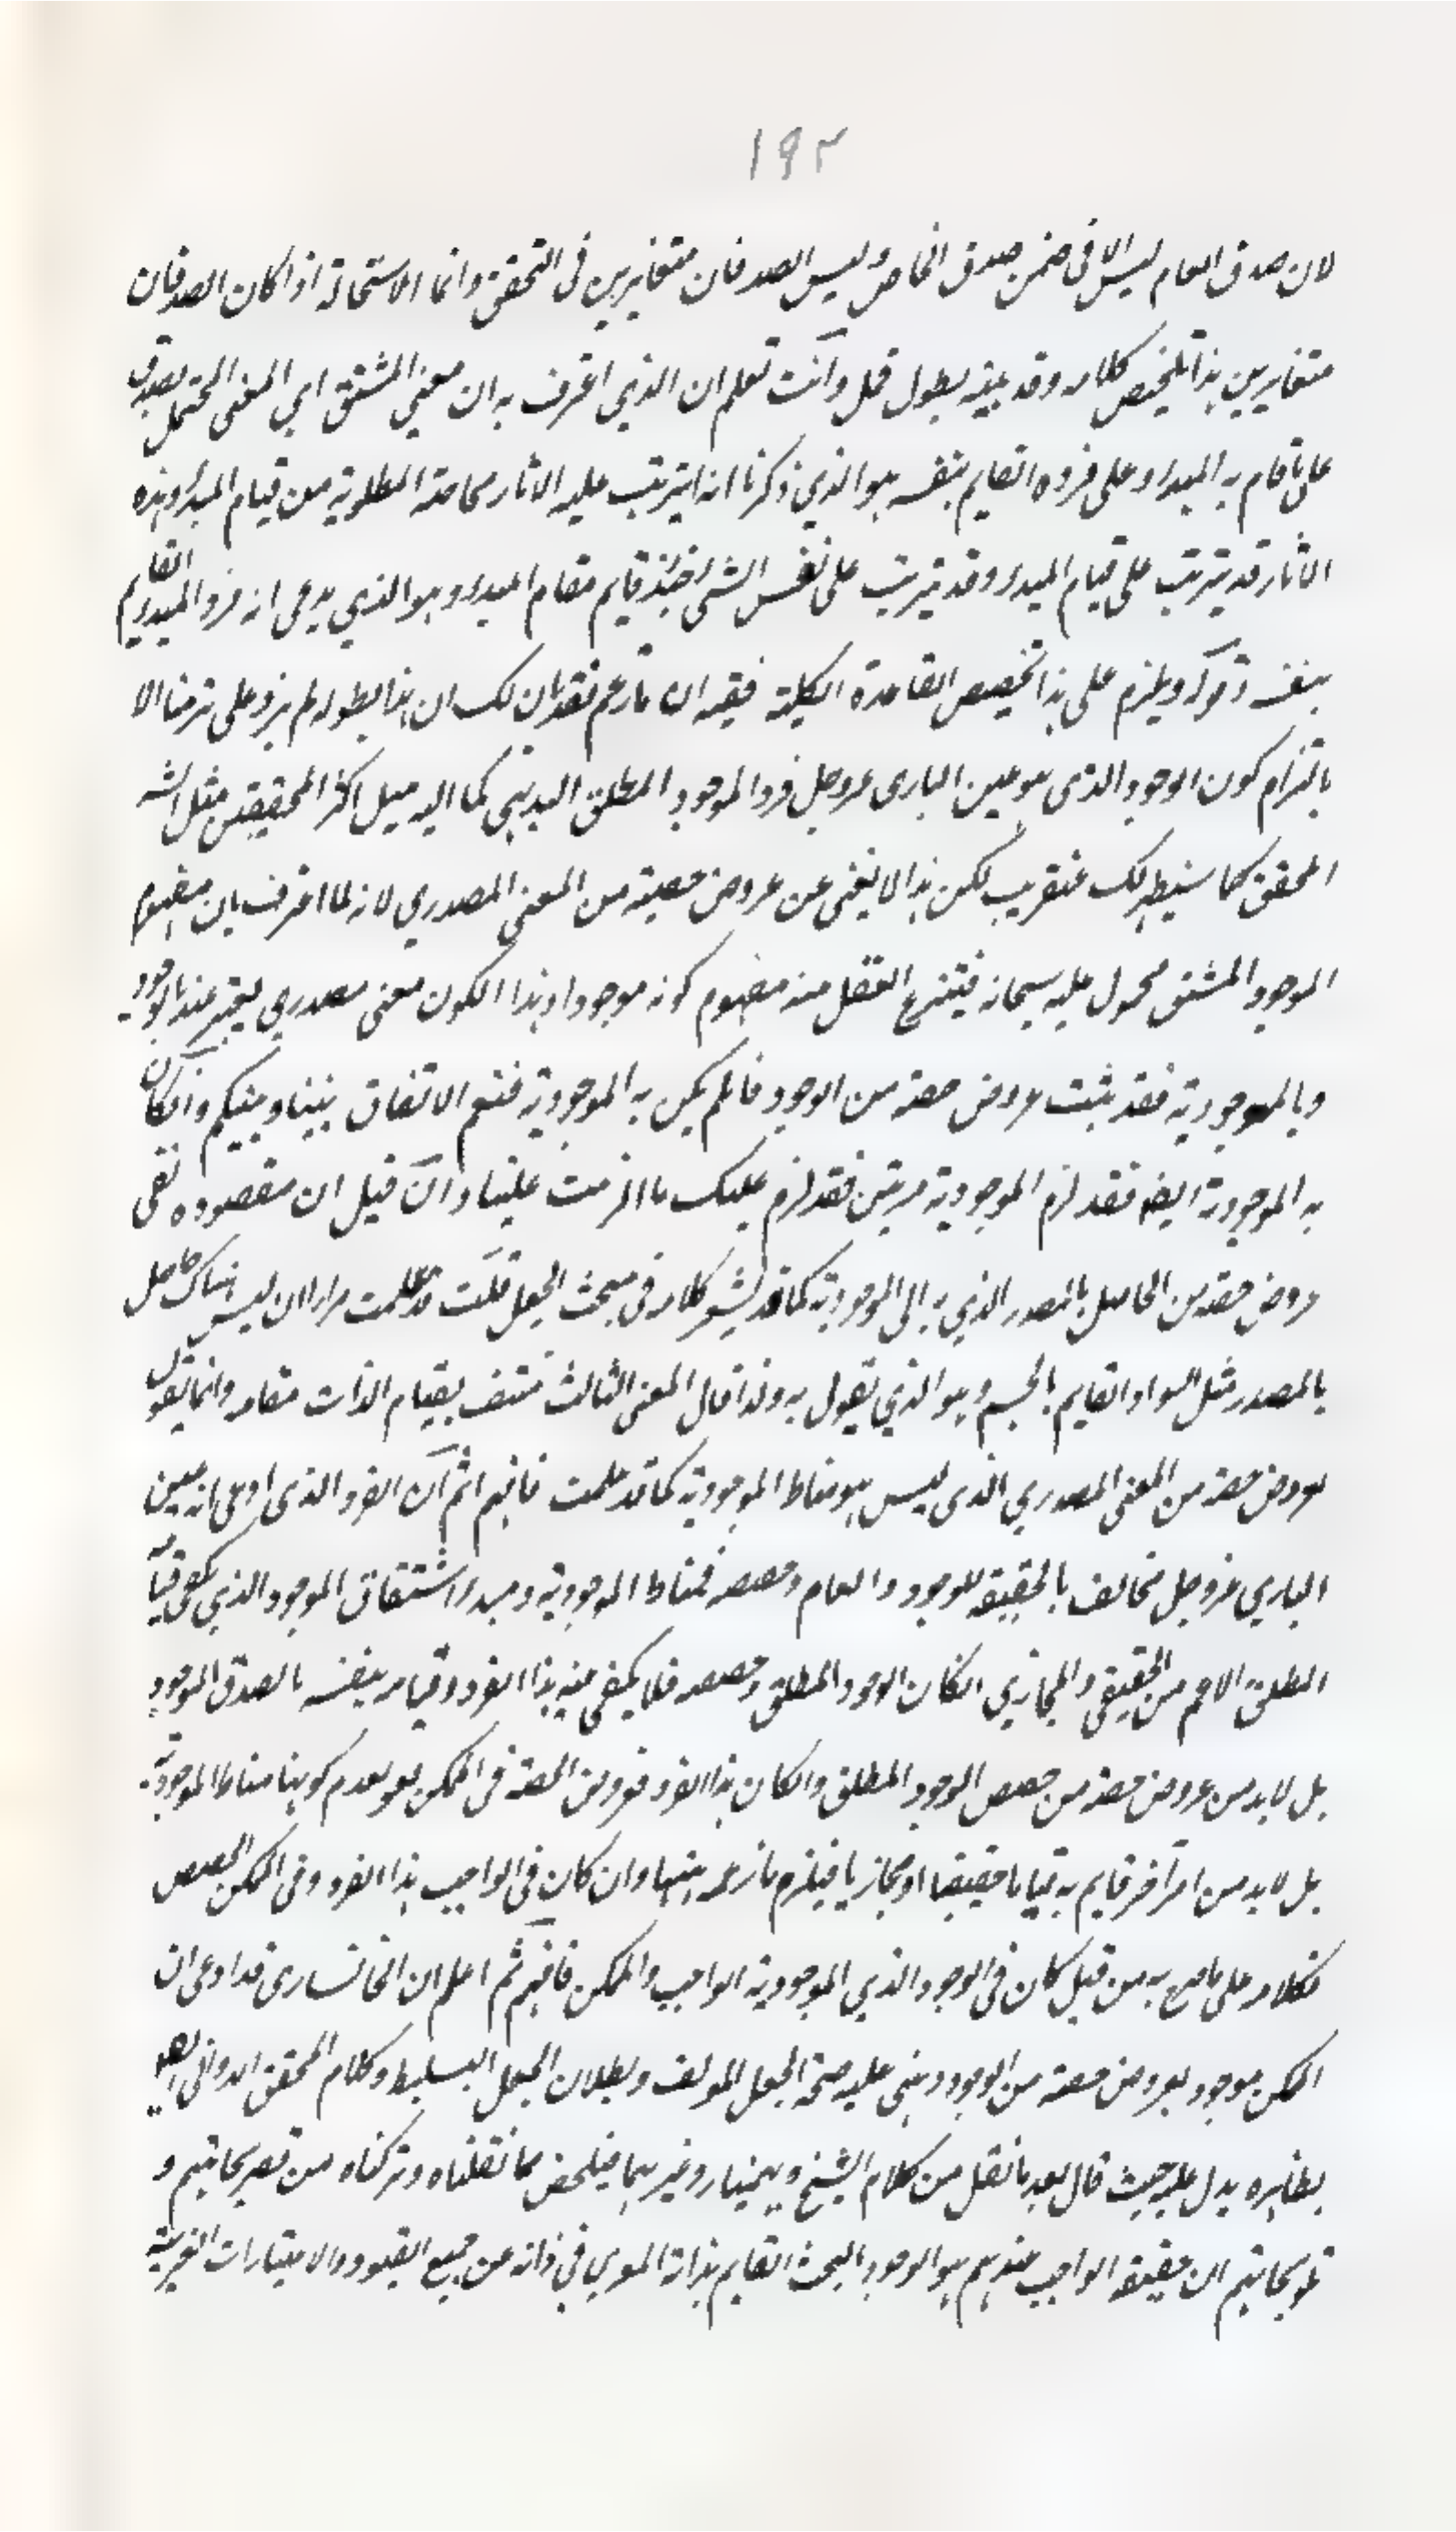 ١٩٢
لان صدق العام ليس الا فى ضمن صدق الخاص وليس الصدقان متغايرين فى التحقق وانما الاستحالة اذا كان الصدقان
متغايرين هذا تلخيص كلامه وقد بينه بطول ممل وانت تعلم ان الذي اعترف به ان معنى المشتق اي المعنى المحتمل يصدق
على ما قام به المبدأ وعلى فرده القايم بنفسه هو الذي ذكرنا انه يترتب عليه الاثار المطلوبة من قيام المبدأ وهذه
الاثار قد يترتب على قيام المبدأ وقد يترتب على نفس الشئ فحينئذ قايم مقام المبدأ وهو الذي يدعى انه فرد المبدأ القايم
بنفسه وقوله ويلزم على هذا تخصيص القاعدة الكلية فيه ان ما زعم فقد بان لك ان هذا بطوله لم يزد على ترضا الا
بالتزام كون الوجود الذى هو عين البارى عز وجل فرد الموجود المطلق البديهى كما اليه ميل اكثر المحققين مثل الش
المحقق كما سيظهر لك عنقريب لكن هذا لا يغنى عن عروض حصته من المعنى المصدري لانه لما اعترف بان مفهوم
الموجود المشتق محمول عليه سبحانه فينتزع العقل منه مفهوم كونه موجودا وهذا الكون معنى مصدري يعبر عنه بالوجود
وبالموجودية فقد ثبت عروض حصة من الوجود فان لم يكن به الموجودية فنعم الاتفاق بيننا وبينكم وان كان
به الموجودية ايضا فقد لزم الموجودية مرتين فقد لزم عليك ما الزمت علينا وان قيل ان مقصوده نفى
عروض حصة من الحاصل بالمصدر الذي به الى الموجودية كما قد يشير كلامه فى مبحث الجعل قلت قد علمت مرارا ان ليس هناك حاصل
بالمصدر مثل السواد القايم بالجسم وهو الذي يقول به ولذا قال المعنى الثالث منتف بقيام الذات مقامه وانما يقول
بعروض حصة من المعنى المصدري الذى ليس هو مناط الموجودية كما قد علمت فافهم ثم ان الفرد الذى ادعى انه عين
الباري عز وجل مخالف بالحقيقة للوجود العام وحصصه فمناط الموجودية ومبدأ اشتقاق الموجود الذي يكفى قيامه
المطلق الاعم من الحقيقى والمجازي ان كان الوجود المطلق وحصصه فلا يكفى فيه هذا الفرد وقيامه بنفسه لصدق الموجود
بل لابد من عروض حصة من حصص الوجود المطلق وان كان هذا الفرد فعروض الحصة فى الممكن هو لعدم كونها مناط الموجودية
بل لابد من امر آخر قايم به قياما حقيقيا او مجازيا فيلزم ما زعمه وان كان فى الواجب هذا الفرد وفى الممكن الحصص
فكلامه على ما مر به من قبل كان فى الوجود الذي الموجودية الواجب والممكن فافهم ثم اعلم ان الخانسارى قد ادعى ان
الممكن موجود بعروض حصة من الوجود وبنى عليه صحة الجعل المولف وبطلان الجعل البسيط وكلام المحقق الدوانى ايضا
بظاهره يدل عليه حيث قال بعد ما نقل من كلام الشيخ وبهمنيار وغيرهما فيلخص مما نقلناه وتركناه من تصريحاتهم و
تلويحاتهم ان حقيقة الواجب عندهم هو الوجود البحت القايم بذاته المعرى فى ذاته عن جميع القيود والاعتبارات الغريبة